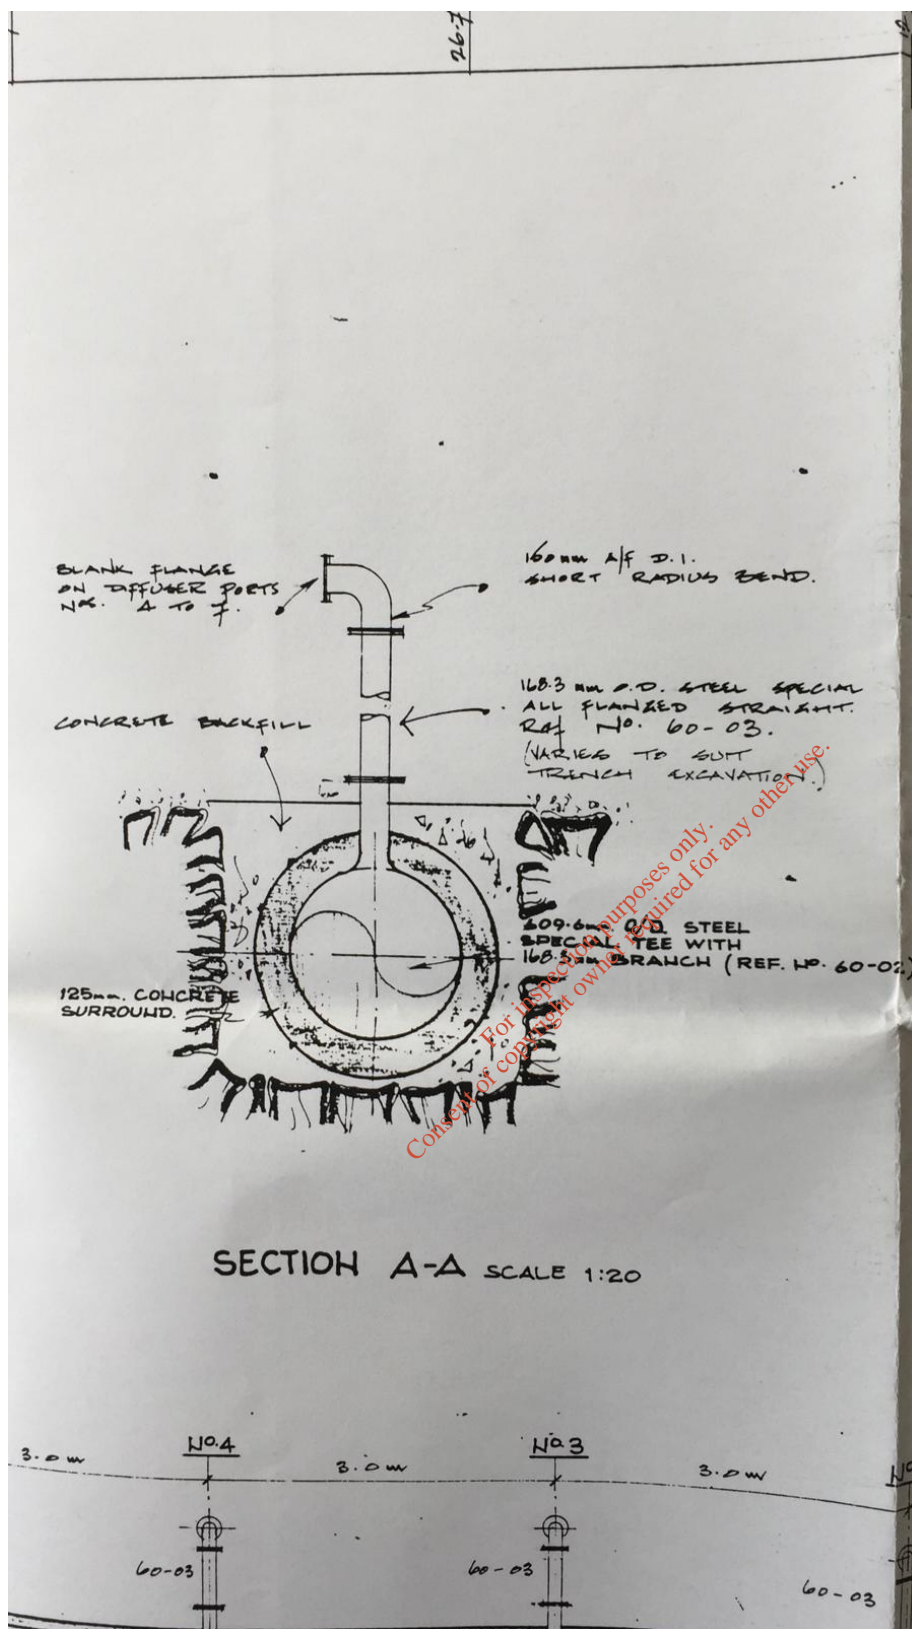 26.7
BLANK FLANGE
ON DIFFUSER PORTS
Nos. 4 TO 7.
160mm A/F D.I.
SHORT RADIUS BEND.
168.3 mm O.D. STEEL SPECIAL
ALL FLANGED STRAIGHT.
Ref No. 60-03.
(VARIES TO SUIT
TRENCH EXCAVATION.)
CONCRETE BACKFILL
609.6mm O/D. STEEL
SPECIAL TEE WITH
168.3mm BRANCH (REF. No. 60-02)
125mm. CONCRETE
SURROUND.
For inspection purposes only.
Consent of copyright owner required for any other use.
SECTION A-A SCALE 1:20
No.4
No.3
3.0m
3.0m
3.0m
60-03
60-03
60-03